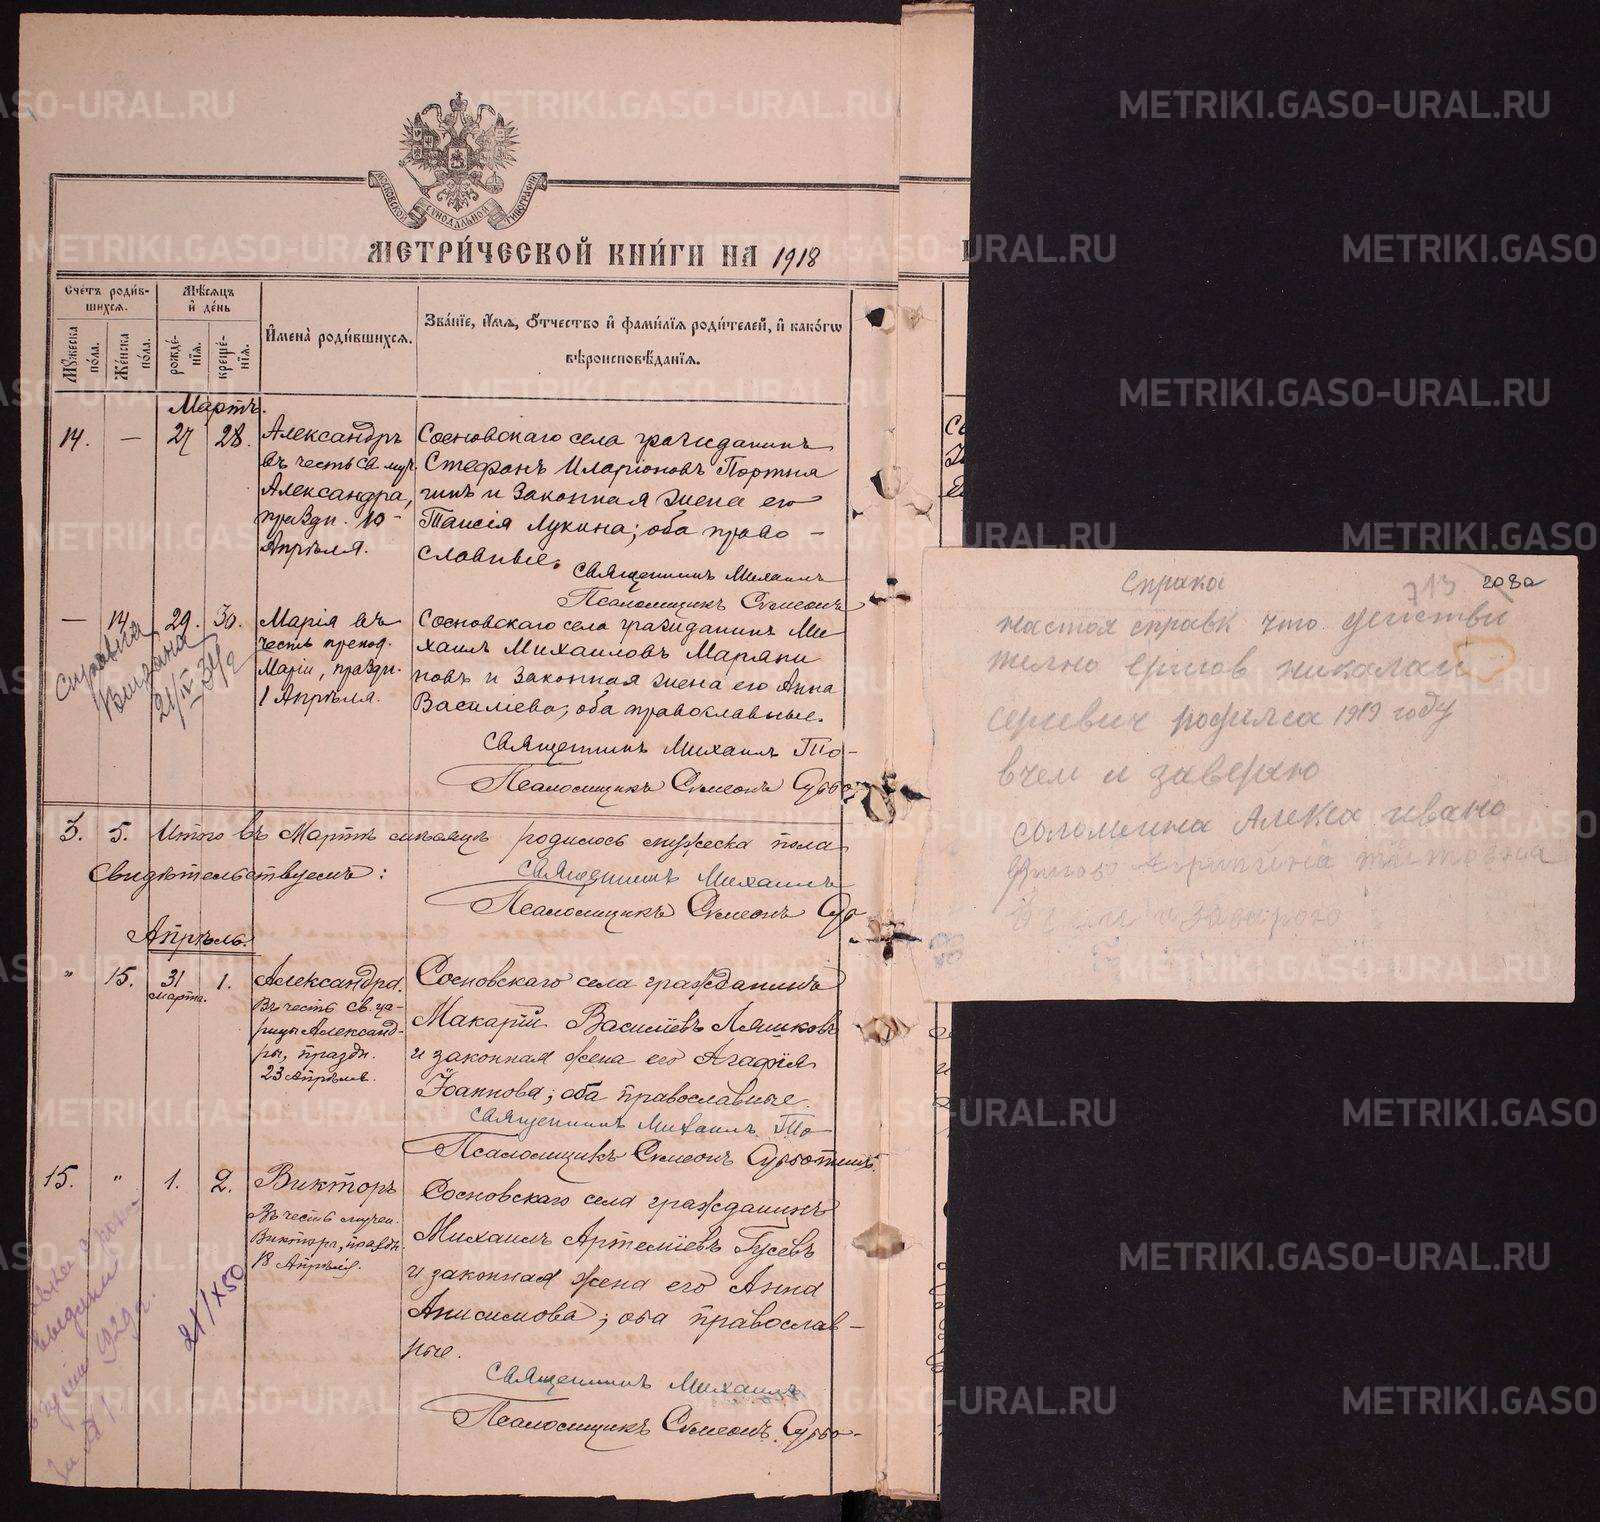 МОСКОВСКОЙ СУНОДАЛЬНОЙ ТИПОГРАФИИ
МЕТРИ́ЧЕСКОЙ КНИ́ГИ НА 1918
Счетъ роди́вшихся.
Мѣсяцъ и́ де́нь
Мужеска по́ла.
Же́нска по́ла.
рожде́нїя.
креще́нїя.
И҆мена̀ роди́вшихся.
Зва́нїе, и҆́мя, ѻ҆́тчество и҆ фами́лїя роди́телей, и҆ како́гѡ
вѣроисповѣ́данїя.
Мартъ.
14. — 27 28. Александръ
въ честь св. муч.
Александра,
праздн. 10
Апрѣля.
Сосновскаго села гражданинъ
Стефанъ Иларіоновъ Портня
гинъ и законная жена его
Таисія Лукина; оба право-
славные.
Священникъ Михаилъ
Псаломщикъ Симеонъ
— 14 29. 30. Марія въ
честь препод.
Маріи, праздн.
1 Апрѣля.
Сосновскаго села гражданинъ Ми
хаилъ Михаиловъ Маряни
новъ и законная жена его Анна
Василіева, оба православные.
Священникъ Михаилъ То-
Псаломщикъ Симеонъ Суббо
Справка
21/IV 34 г
3. 5. Итого въ Мартѣ мѣсяцѣ родилось мужеска пола
Свидѣтельствуемъ:
Священникъ Михаилъ
Псаломщикъ Симеонъ Суб
Апрѣль.
" 15. 31 марта. 1. Александра.
Въ честь св. ца-
рицы Александ-
ры, праздн.
23 Апрѣля.
Сосновскаго села гражданинъ
Макарій Василіевъ Ляшковъ
и законная жена его Агафія
Іоаннова; оба православные.
Священникъ Михаилъ То-
Псаломщикъ Симеонъ Субботинъ.
15. " 1. 2. Викторъ
Въ честь мучен.
Виктора, праздн.
18 Апрѣля.
Сосновскаго села гражданинъ
Михаилъ Артеміевъ Гусевъ
и законная жена его Анна
Анисимова; оба православ-
ные.
Священникъ Михаилъ
Псаломщикъ Симеонъ Суббо-
21/X 50
Справка 713 2080
настоя справк что действи
телно николаи
сергевич родился 1919 году
вчем и заверяю
соломеина Алекса ивано
METRIKI.GASO-URAL.RU